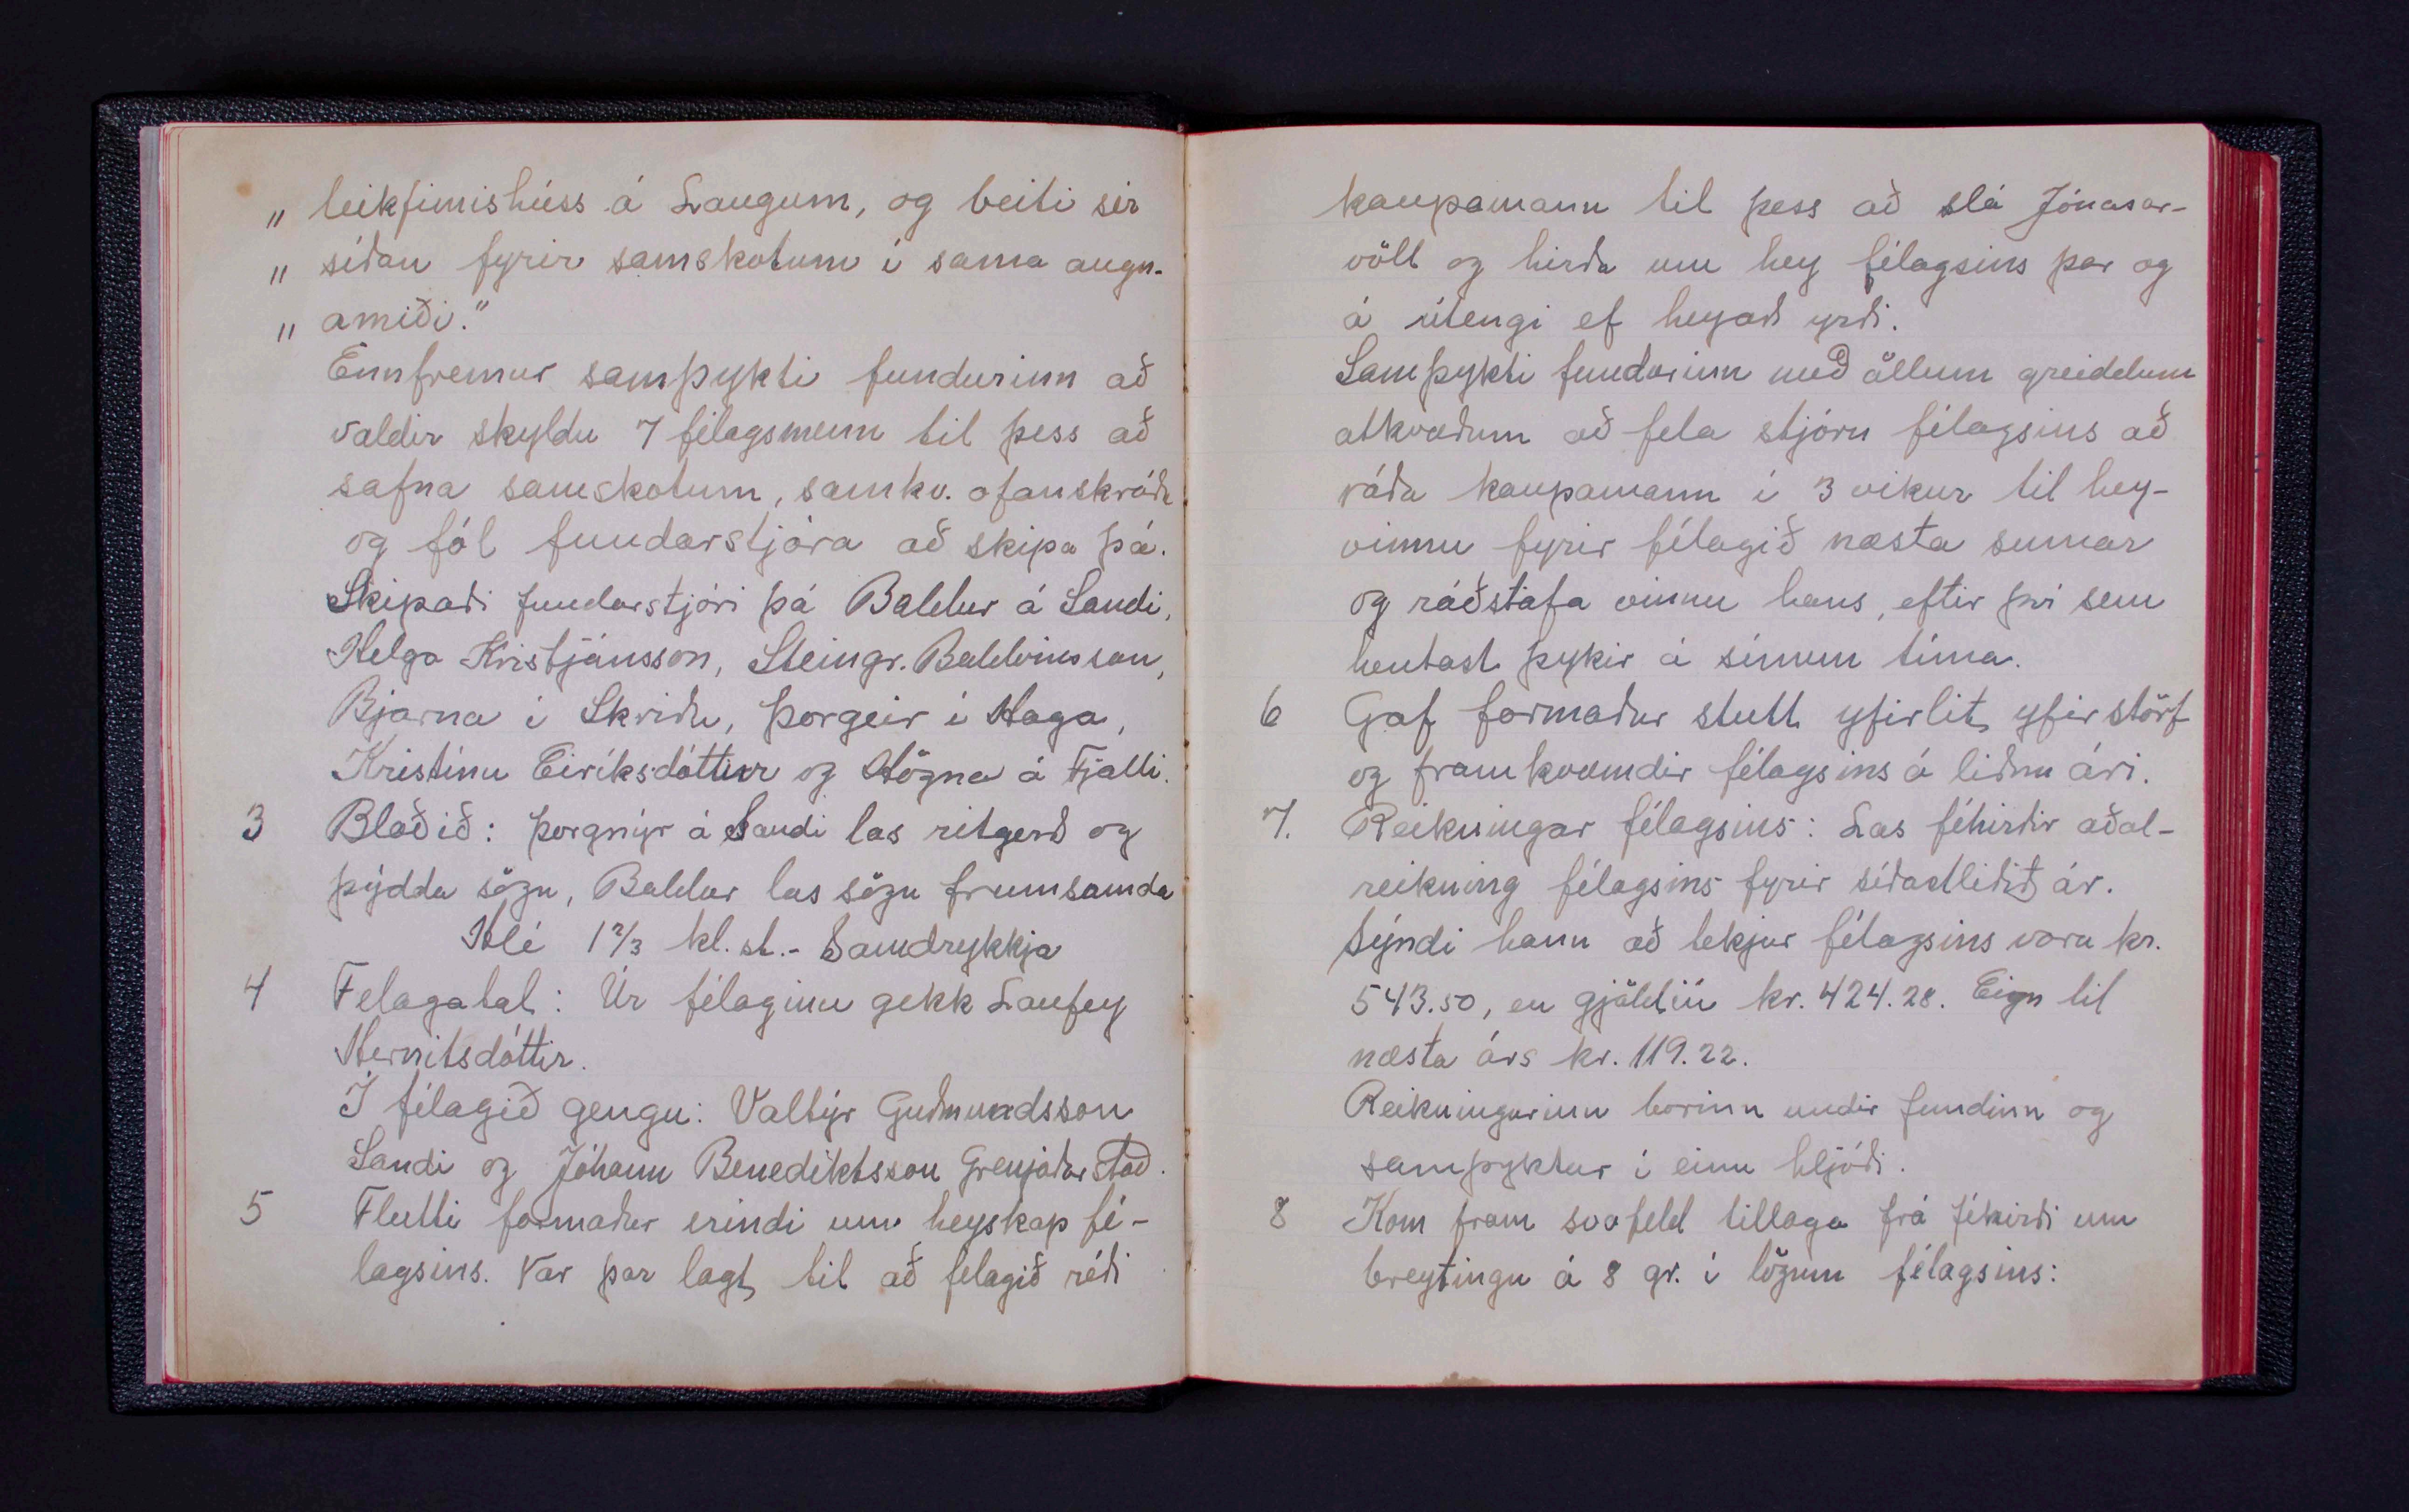 „ leikfimishúss á Laugum, og beiti sér
„ síðan fyrir samskotum í sama augn-
„ amiði."
Ennfremur samþykti fundurinn að
valdir skyldu 7 félagsmenn til þess að
safna samskotum, samkv. ofanskráðu
og fól fundarstjóra að skipa þá.
Skipaði fundarstjóri þá Baldur á Sandi,
Helga Kristjánsson, Steingr. Baldvinsson,
Bjarna í Skriðu, Þorgeir í Haga,
Kristínu Eiríksdóttur og Högna á Fjalli.
3 Blaðið: Þorgnýr á Sandi las ritgerð og
þýdda sögu, Baldur las sögu frumsamda
Hlé 1 2/3 kl. st. - Samdrykkja
4 Felagatal: Úr félaginu gekk Laufey
Hernitsdóttir.
Í félagið gengu: Valtýr Guðmundsson
Sandi og Jóhann Benediktsson Grenjaðarstað.
5 Flutti formaður erindi um heyskap fé-
lagsins. Var þar lagt til að félagið réði
kaupamann til þess að slá Jónasar-
völl og hirða um hey félagsins þar og
á útengi ef heyað yrði.
Samþykti fundurinn með öllum greiddum
atkvæðum að fela stjórn félagsins að
ráða kaupamann í 3 vikur til hey-
vinnu fyrir félagið næsta sumar
og ráðstafa vinnu hans, eftir því sem
hentast þykir á sínum tíma.
6 Gaf formaður stutt yfirlit yfir störf
og framkvæmdir félagsins á liðnu ári.
7. Reikningar félagsins: Las féhirðir aðal-
reikning félagsins fyrir síðastliðið ár.
Sýndi hann að tekjur félagsins voru kr.
543.50, en gjöldin kr. 424.28. Eign til
næsta árs kr. 119.22.
Reikningurinn borinn undir fundinn og
samþyktur í einu hljóði.
8 Kom fram svofeld tillaga frá féhirði um
breytingu á 8 gr. í lögum félagsins: